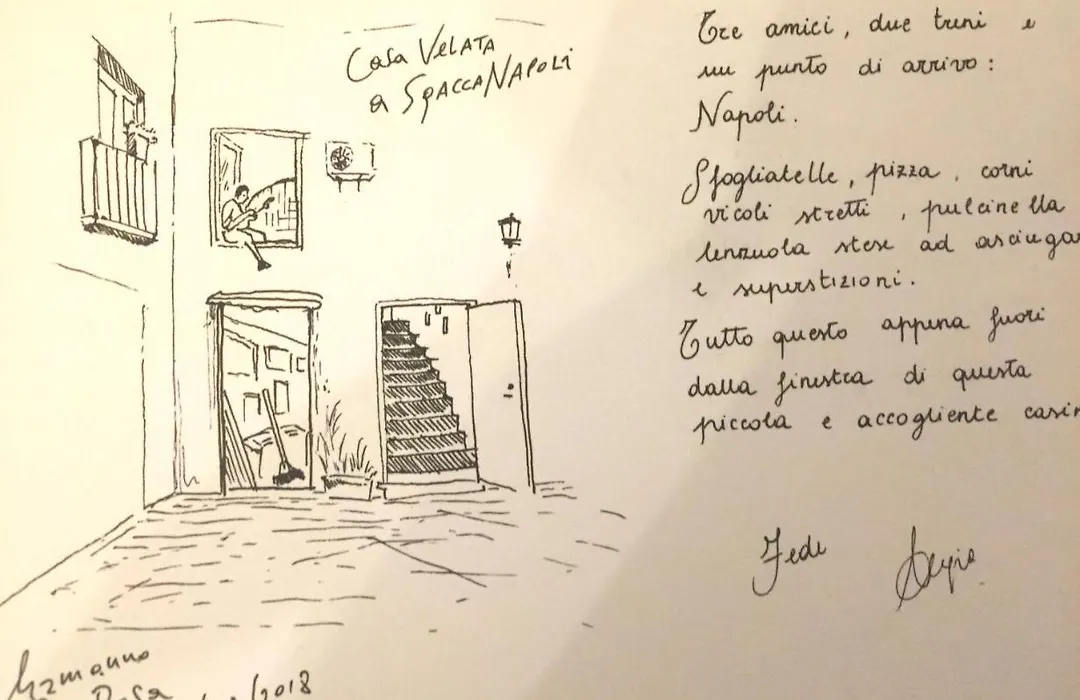 Casa Velata
a SpaccaNapoli
Tre amici, due treni e
un punto di arrivo:
Napoli.
Sfogliatelle, pizza, corni
vicoli stretti, pulcinella
lenzuola stese ad asciugar
e superstizioni.
Tutto questo appena fuori
dalla finestra di questa
piccola e accogliente casin
Fede
Ermanno
Rosa /2018